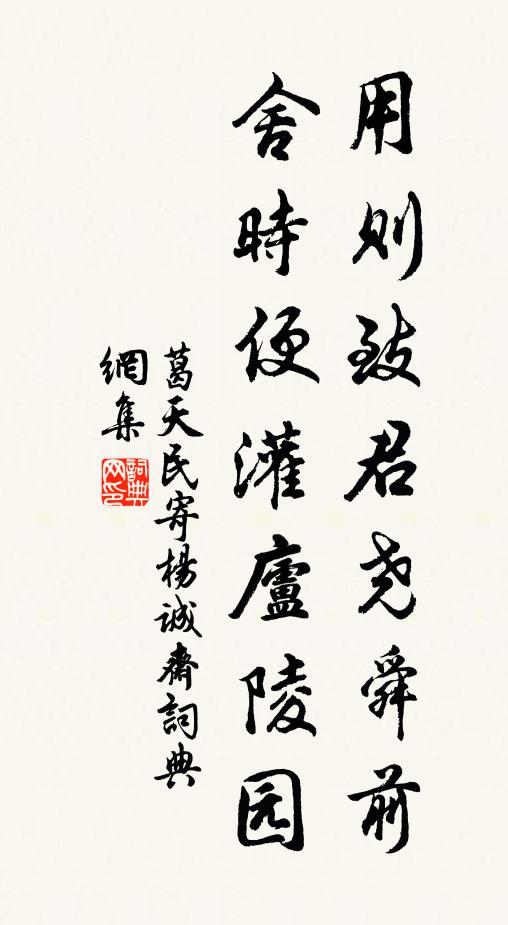 用则致君尧舜前
舍時便灌廬陵园
葛天民寄楊誠齋詞典
網集
詞典网印